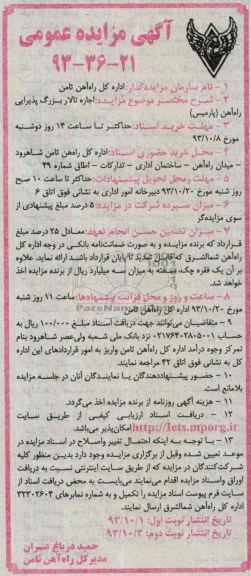 آگهی مزایده عمومی
۹۳-۳۶-۲۱
۱- نام سازمان مزایده‌گذار: اداره کل راه‌آهن ثامن
۲- شرح مختصر موضوع مزایده: اجاره تالار بزرگ پذیرایی
راه‌آهن (پارمیس)
۳- مهلت خرید اسناد: حداکثر تا ساعت ۱۴ روز دوشنبه
مورخ ۹۳/۱۰/۸
۴- محل خرید حضوری اسناد: اداره کل راه‌آهن ثامن شاهرود
- میدان راه‌آهن - ساختمان اداری - تدارکات - اطاق شماره ۴۹
۵- مهلت ومحل تحویل پیشنهادات: حداکثر تا ساعت ۱۰ صبح
روز شنبه مورخ ۹۳/۱۰/۲۰ دبیرخانه امور اداری به نشانی فوق اتاق ۶
۶- میزان سپرده شرکت در مزایده: ۵ درصد مبلغ پیشنهادی از
سوی مزایده‌گر
۷- میزان تضمین حسن انجام تعهد: معادل ۲۵ درصد مبلغ
قرارداد که برنده مزایده و به صورت ضمانت‌نامه بانکی در وجه اداره کل
راه‌آهن شمالشرق که قابل تمدید تا پایان قرارداد باشد ارائه نماید. علاوه
بر آن یک فقره چک سفته به میزان سه میلیارد ریال از برنده مزایده اخذ
خواهد شد.
۸- ساعت و روز و محل قرائت پیشنهادها: ساعت ۱۱ روز شنبه
مورخ ۹۳/۱۰/۲۰ اداره کل راه‌آهن ثامن
۹- متقاضیان می‌توانند جهت دریافت اسناد مبلغ ۱۰۰/۰۰۰ ریال به
حساب ۰۲۱۷۶۴۰۲۸۰۵۰۰۱ نزد بانک ملی شعبه ولی‌عصر شاهرود بنام
تمرکز وجوه درآمد اداره کل راه‌آهن ثامن واریز به امور قراردادهای این اداره
کل به نشانی فوق اتاق ۴۲ مراجعه نمایند.
۱۰- حضور پیشنهاددهندگان یا نمایندگان آنان در جلسه مزایده
بلامانع است.
۱۱- هزینه آگهی روزنامه از برنده مزایده اخذ می‌گردد.
۱۲- دریافت اسناد ارزیابی کیفی از طریق سایت
http://Iets.mporg.ir امکان‌پذیر می‌باشد.
۱۳- با توجه به اینکه احتمال تغییر واصلاح در اسناد مزایده در
موعد تعیین شده وقبل از برگزاری مزایده وجود دارد بدین منظور کلیه
شرکت‌کنندگان در مزایده که از طریق سایت اینترنتی نسبت به دریافت
اوراق واسناد مزایده اقدام می‌نمایند می‌بایست به محض دریافت اسناد از
سایت فرم پیوست اسناد مزایده را تکمیل و به شماره نمابرهای ۳۲۳۰۲۶۰۴
اداره کل راه‌آهن شمالشرق ارسال نمایند.
تاریخ انتشار نوبت اول: ۹۳/۱۰/۱
تاریخ انتشار نوبت دوم: ۹۳/۱۰/۳
حمید درباغ عنبران
مدیرکل راه‌آهن ثامن